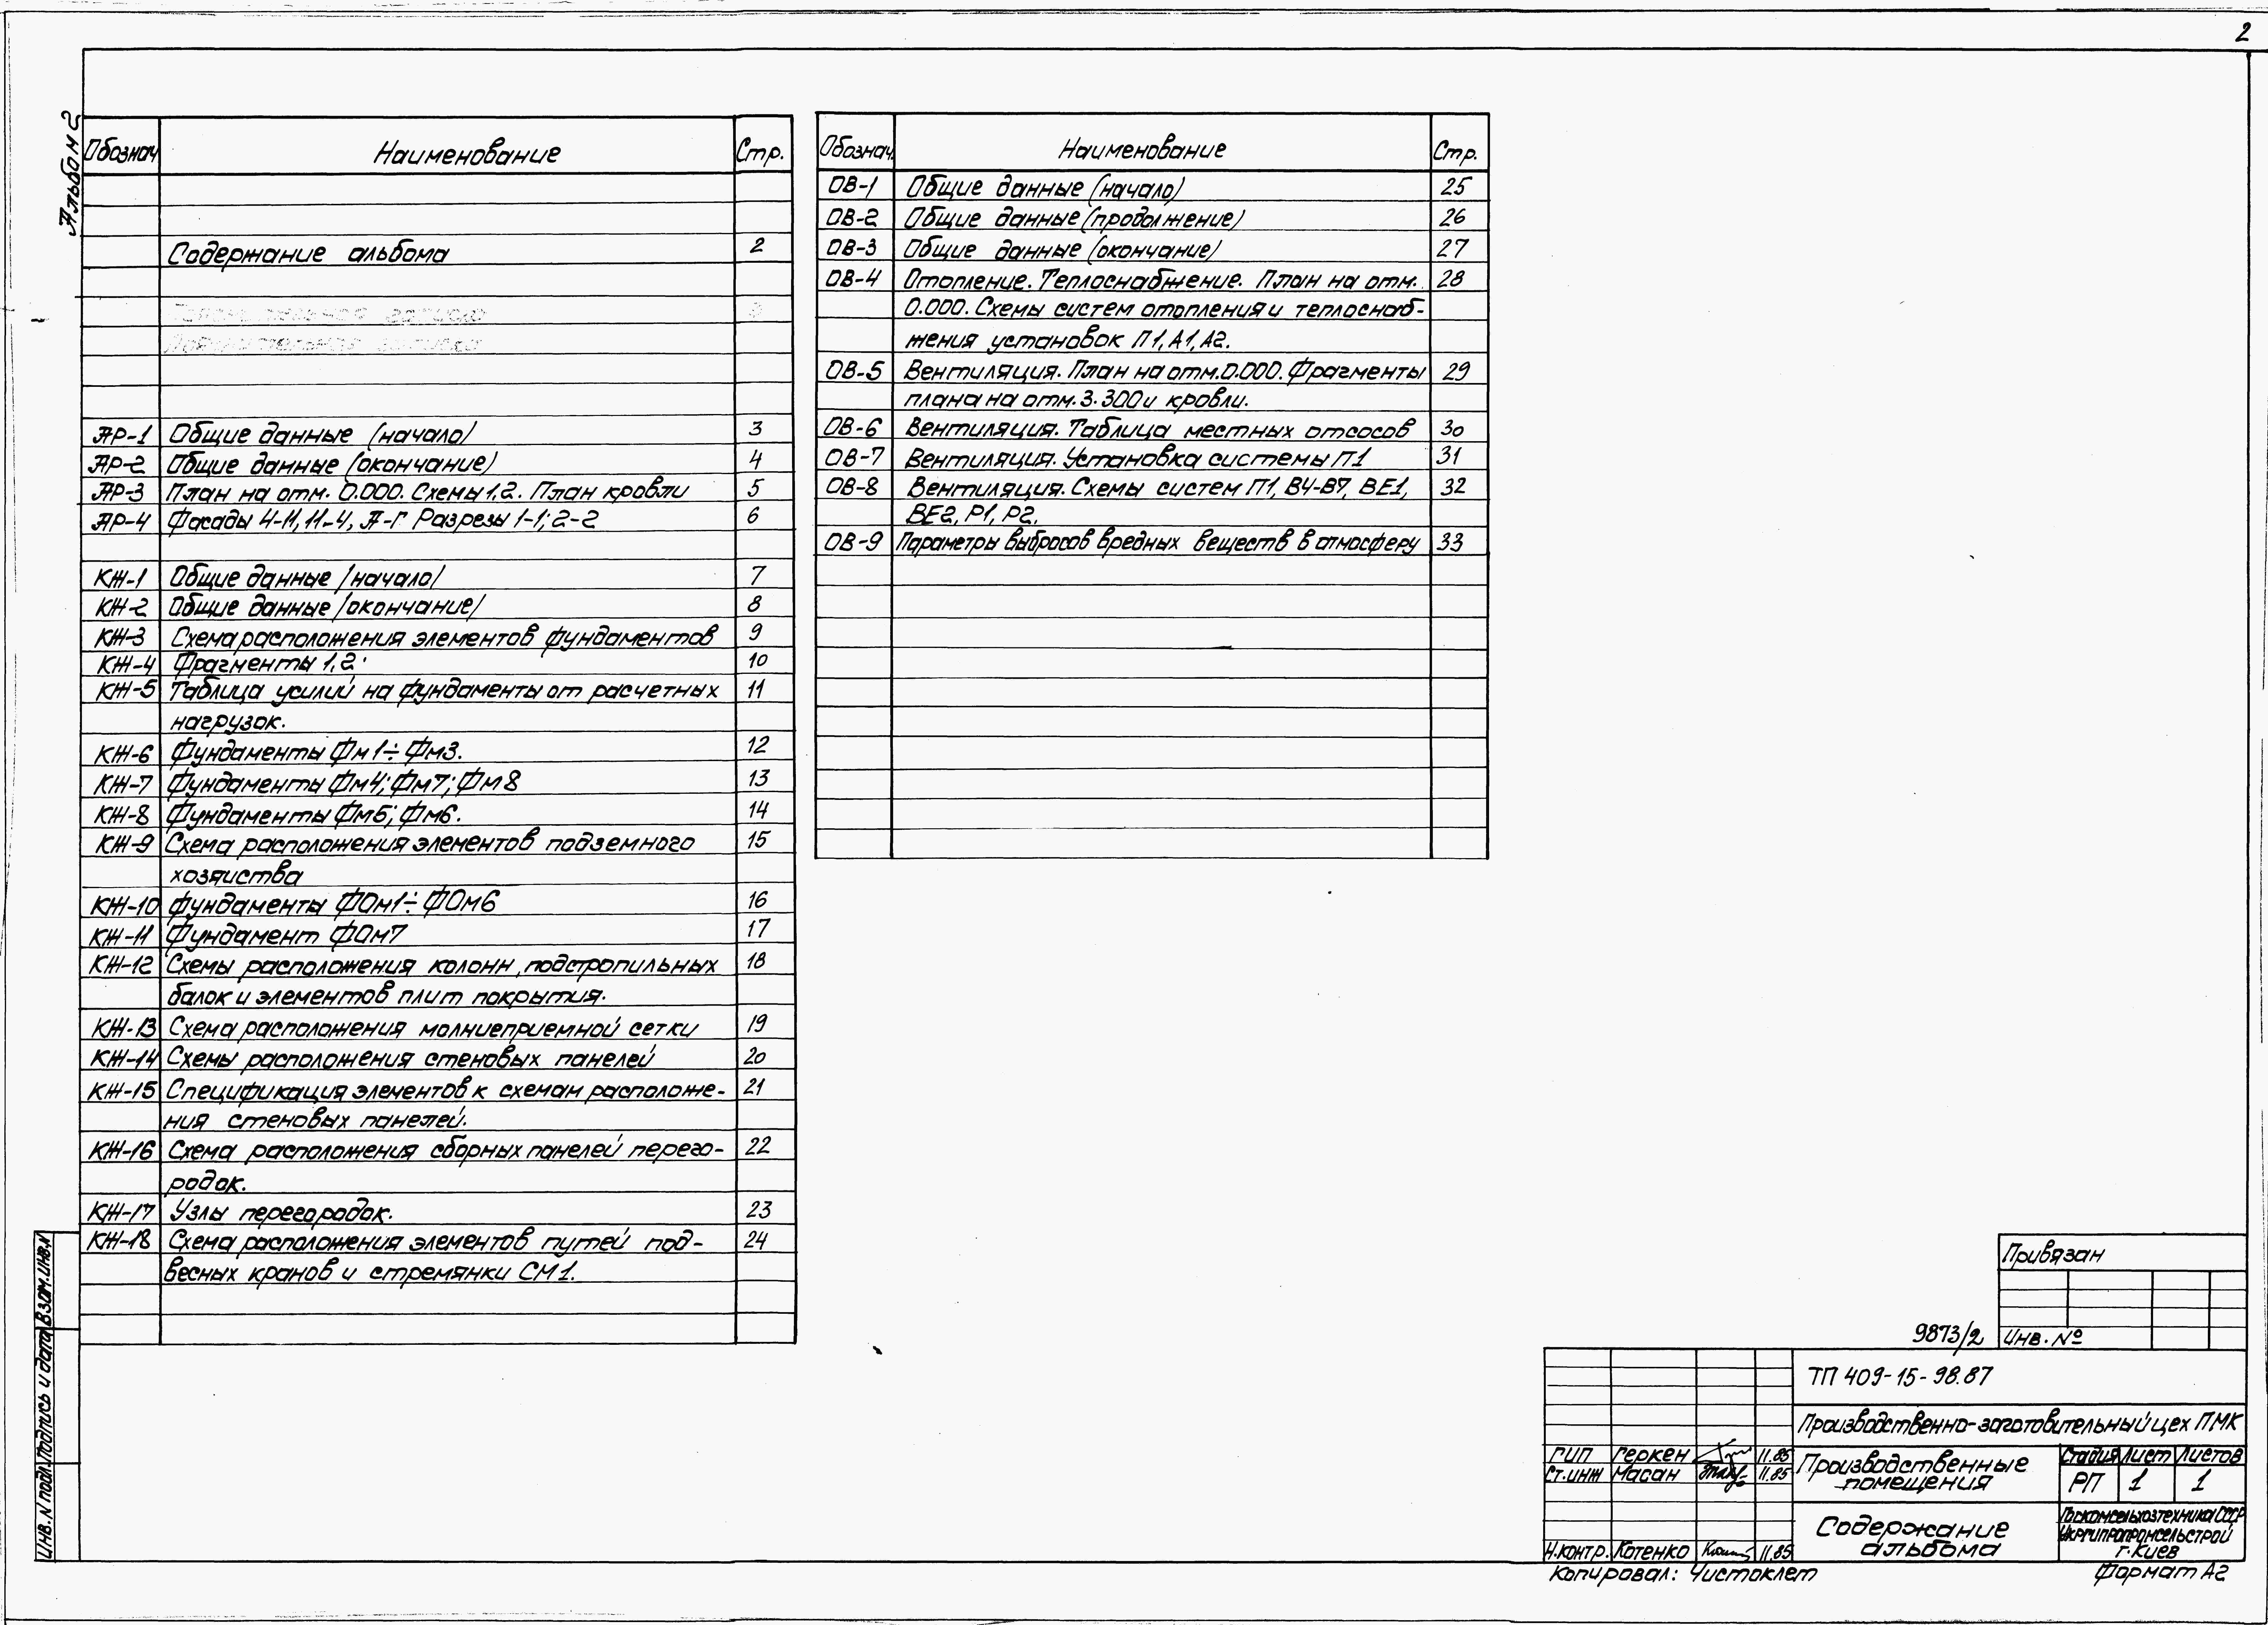 2
Альбом 2
Обознач Наименование Стр.
Содержание альбома 2
АР-1 Общие данные (начало) 3
АР-2 Общие данные (окончание) 4
АР-3 План на отм. 0.000. Схемы 1,2. План кровли 5
АР-4 Фасады 4-11, 11-4, А-Г Разрезы 1-1; 2-2 6
КЖ-1 Общие данные /начало/ 7
КЖ-2 Общие данные /окончание/ 8
КЖ-3 Схема расположения элементов фундаментов 9
КЖ-4 Фрагменты 1,2. 10
КЖ-5 Таблица усилий на фундаменты от расчетных 11
нагрузок.
КЖ-6 Фундаменты Фм1÷Фм3. 12
КЖ-7 Фундаменты Фм4; Фм7; Фм8 13
КЖ-8 Фундаменты Фм5; Фм6. 14
КЖ-9 Схема расположения элементов подземного 15
хозяиства
КЖ-10 Фундаменты ФОм1÷ФОм6 16
КЖ-11 Фундамент ФОм7 17
КЖ-12 Схемы расположения колонн, подстропильных 18
балок и элементов плит покрытия.
КЖ-13 Схема расположения молниеприемной сетки 19
КЖ-14 Схемы расположения стеновых панелей 20
КЖ-15 Спецификация элементов к схемам расположе- 21
ния стеновых панелей.
КЖ-16 Схема расположения сборных панелей перего- 22
родок.
КЖ-17 Узлы перегородок. 23
КЖ-18 Схема расположения элементов путей под- 24
весных кранов и стремянки СМ1.
Обознач. Наименование Стр.
ОВ-1 Общие данные (начало) 25
ОВ-2 Общие данные (продолжение) 26
ОВ-3 Общие данные (окончание) 27
ОВ-4 Отопление. Теплоснабжение. План на отм. 28
0.000. Схемы систем отопления и теплоснаб-
жения установок П1, А1, А2.
ОВ-5 Вентиляция. План на отм. 0.000. Фрагменты 29
плана на отм. 3.300 и кровли.
ОВ-6 Вентиляция. Таблица местных отсосов 30
ОВ-7 Вентиляция. Установка системы П1 31
ОВ-8 Вентиляция. Схемы систем П1, В4-В7, ВЕ1, 32
ВЕ2, Р1, Р2.
ОВ-9 Параметры выбросов вредных веществ в атмосферу 33
Инв. N подл. Подпись и дата Взам. инв. N
Привязан
Инв. №
9873/2
ТП 409-15-98.87
Производственно-заготовительный цех ПМК
ГИП Геркен 11.85
Ст. инж Масан 11.85
Н. контр. Котенко 11.85
Производственные
помещения
Стадия Лист Листов
РП 1 1
Содержание
альбома
Госкомсельхозтехника СССР
Укргипропромсельстрой
г. Киев
Копировал: Чистоклет
Формат А2